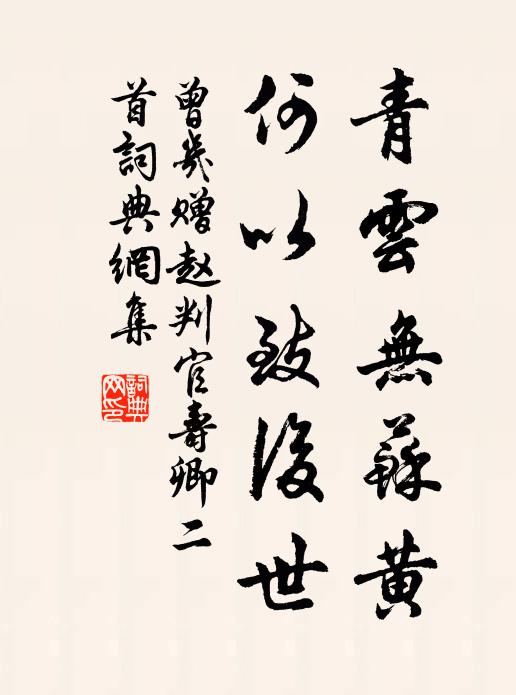 青雲無蘇黄
何以致後世
曾幾贈赵判官壽卿二
首詞典網集
詞典
网印